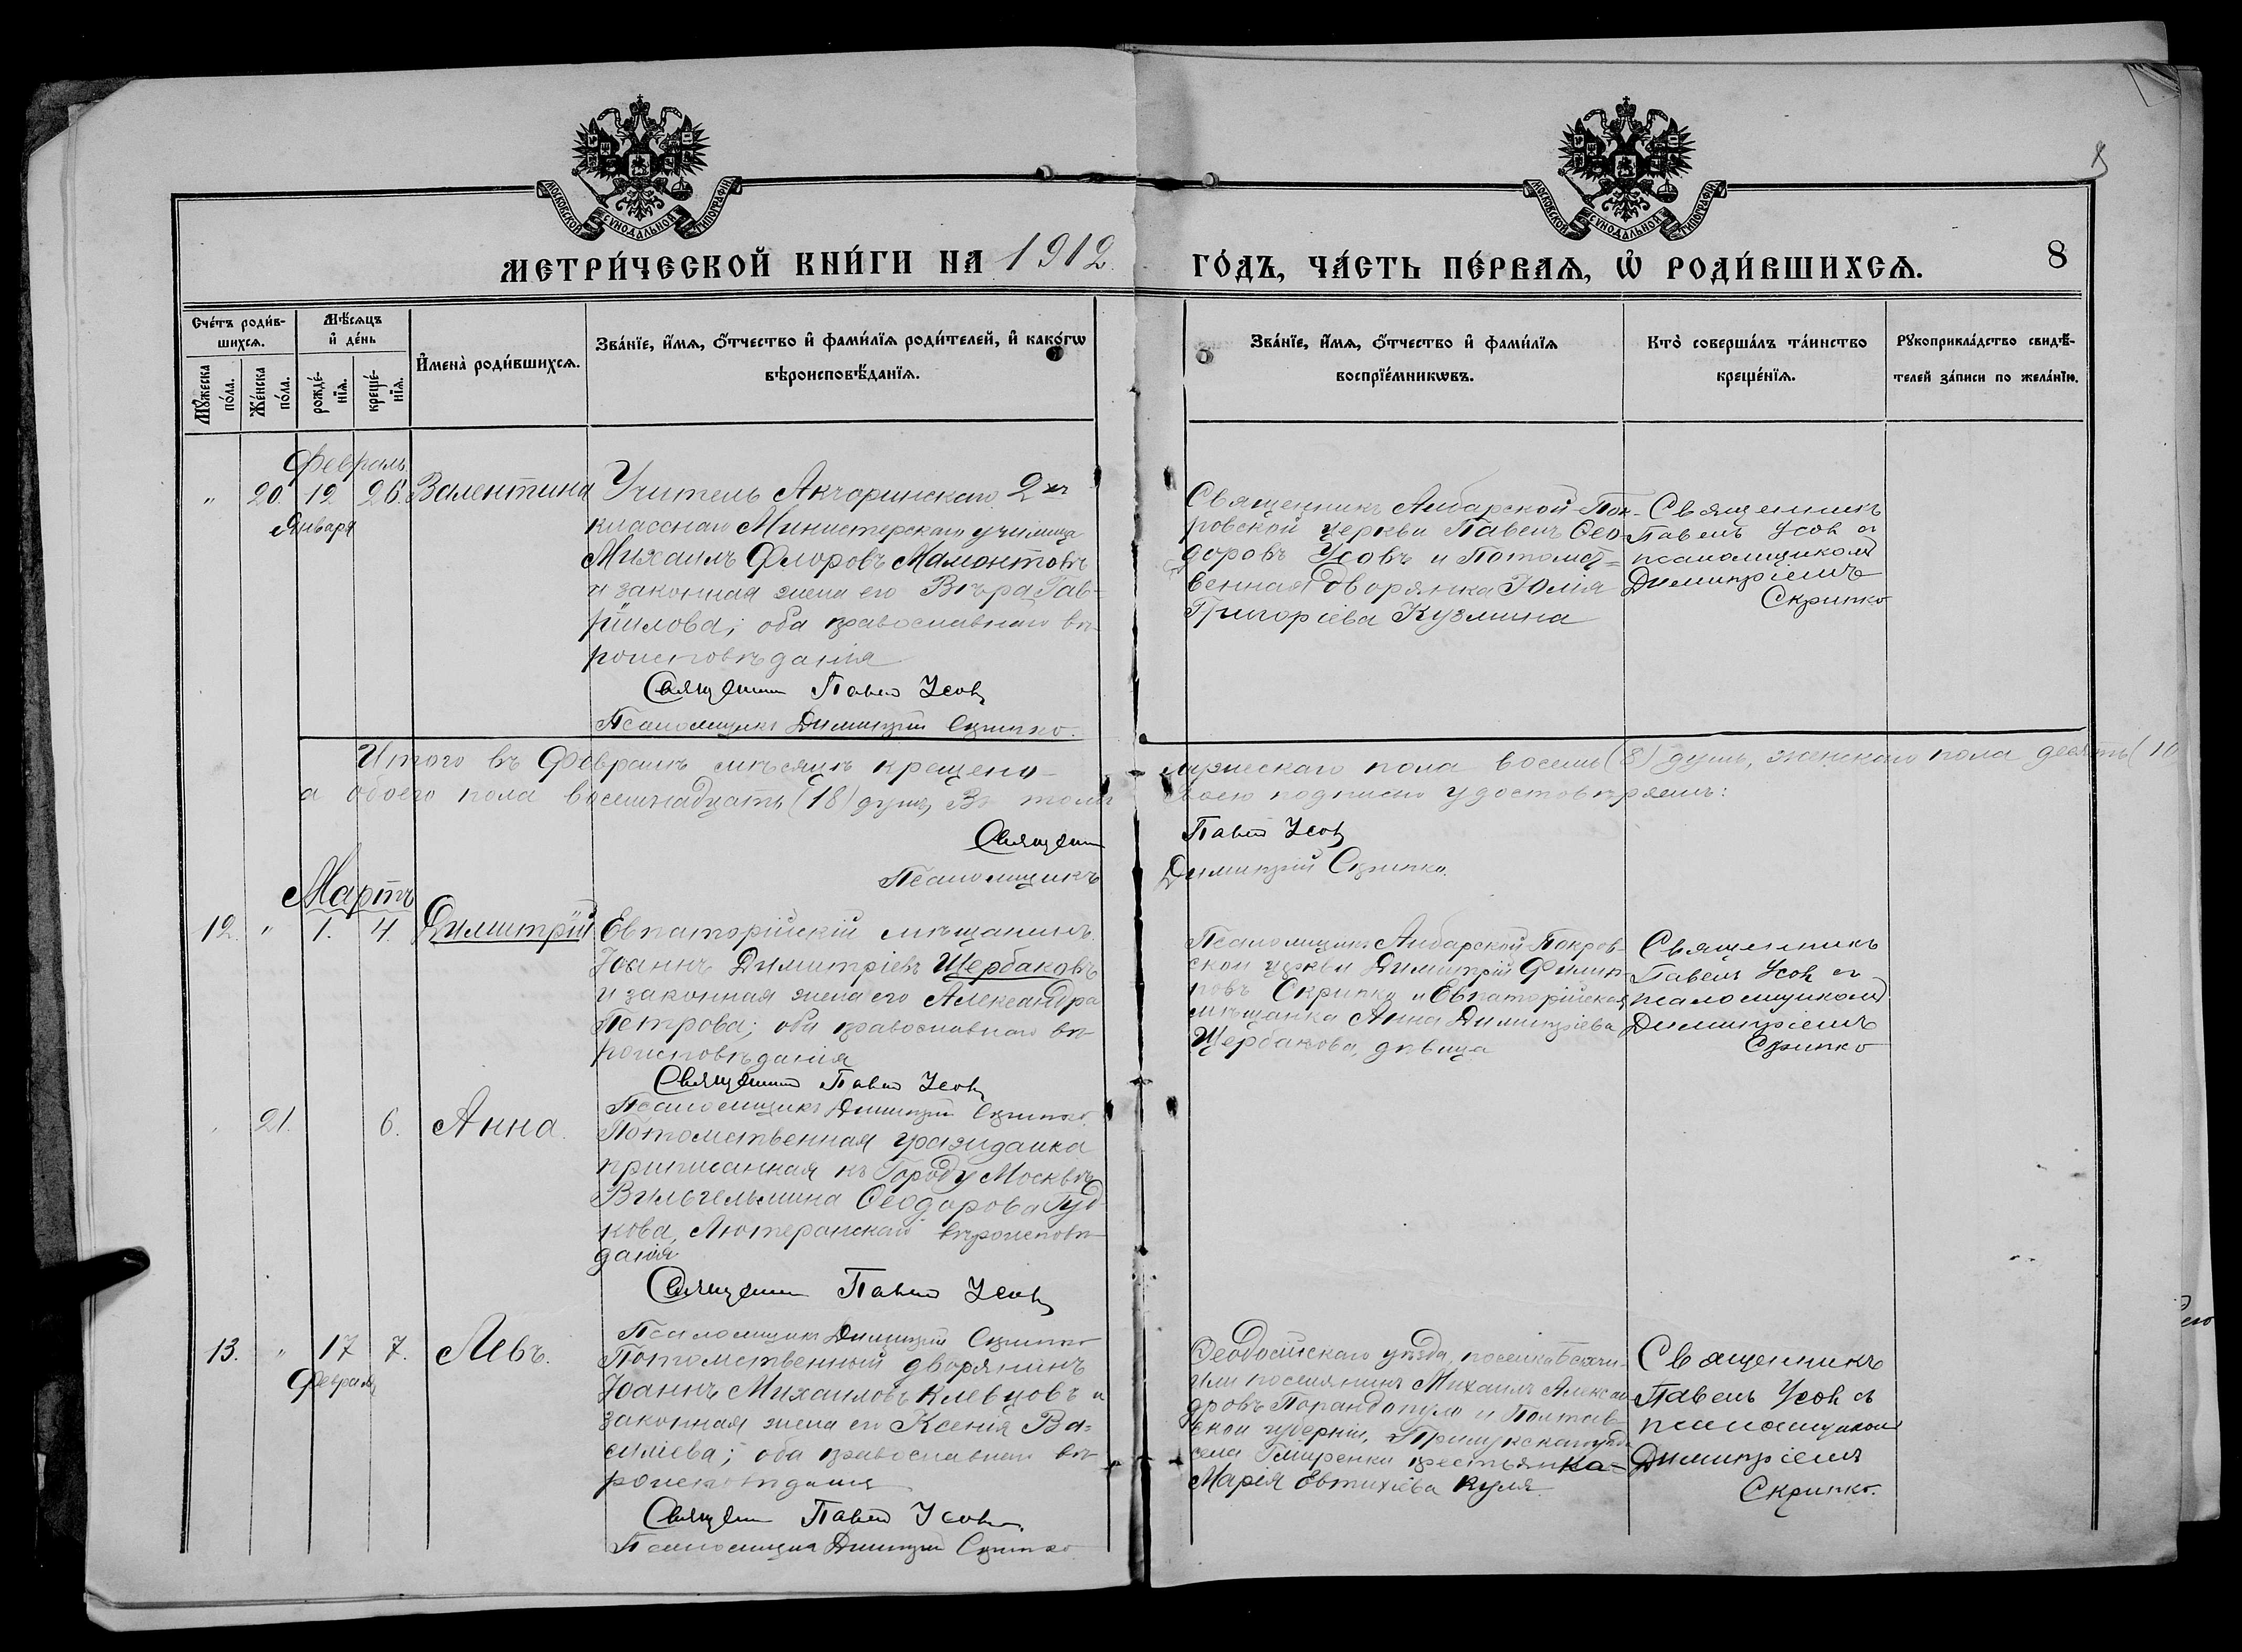 МОСКОВСКОЙ СѴНОДАЛЬНОЙ ТИПОГРАФІИ
МОСКОВСКОЙ СѴНОДАЛЬНОЙ ТИПОГРАФІИ
МЕТРИ́ЧЕСКОЙ КНИ́ГИ НА 1912
ГО́ДЪ, ЧА́СТЬ ПЕ́РВАѦ, Ѽ РОДИ́ВШИХСѦ. 8
Сче́тъ роди́вшихсѧ.
Мꙋ́жеска по́ла.
Же́нска по́ла.
Мѣ́сѧцъ и҆ де́нь
рожде́нїѧ.
креще́нїѧ.
И҆мена̀ роди́вшихсѧ.
Зва́нїе, и҆́мѧ, ѻ҆́тчество и҆ фами́лїѧ роди́телей, и҆ како́гѡ
вѣроисповѣ́данїѧ.
Зва́нїе, и҆́мѧ, ѻ҆́тчество и҆ фами́лїѧ
воспрїе́мникѡвъ.
Кто̀ соверша́лъ та́инство
креще́нїѧ.
Рꙋкоприкла́дство свидѣ́-
телей за́писи по жела́нїю.
Февраль
" 20. 12 26. Валентина
Января
Учитель Акчоринскаго 2хъ
класснаго Министерскаго училища
Михаилъ Флоровъ Мамонтовъ
и законная жена его Вѣра Гав-
ріилова; оба православнаго вѣ-
роисповѣданія
Священникъ Павелъ Усовъ
Псаломщикъ Димитрій Скрипко.
Священникъ Анбарской Пок-
ровской церкви Павелъ Ѳео-
доровъ Усовъ и Потомст-
венная дворянка Юлія
Григоріева Кузмина
Священникъ
Павелъ Усовъ съ
псаломщикомъ
Димитріемъ
Скрипко
Итого въ Февралѣ мѣсяцѣ крещено мужескаго пола восемь (8) душъ, женскаго пола десять (10
а обоего пола восемнадцать (18) душъ, Въ томъ своею подписью удостовѣряемъ:
Священникъ Павелъ Усовъ
Псаломщикъ Димитрій Скрипко.
Мартъ
12. " 1. 4. Димитрій
Евпаторійскій мѣщанинъ
Іоаннъ Димитріевъ Щербаковъ
и законная жена его Александра
Петрова; оба православнаго вѣ-
роисповѣданія
Священникъ Павелъ Усовъ
Псаломщикъ Димитрій Скрипко.
Псаломщикъ Анбарской Покров-
ской церкви Димитрій Филип-
повъ Скрипко и Евпаторійская
мѣщанка Анна Димитріева
Щербакова, дѣвица
Священникъ
Павелъ Усовъ съ
псаломщикомъ
Димитріемъ
Скрипко
21. 6. Анна.
Потомственная гражданка
приписанная къ Городу Москвѣ
Вильгельмина Ѳеодорова Гуд-
кова, Лютеранскаго вѣроисповѣ-
данія
Священникъ Павелъ Усовъ
Псаломщикъ Димитрій Скрипко
13. " 17 7. Левъ.
Февраля
Потомственный дворянинъ
Іоаннъ Михаиловъ Клевцовъ и
законная жена его Ксенія Ва-
силіева; оба православнаго вѣ-
роисповѣданія
Священникъ Павелъ Усовъ
Псаломщикъ Димитрій Скрипко
Ѳеодосійскаго уѣзда, поселка
поселянинъ Михаилъ Алексан
дровъ Парандопуло и Полтав-
ской губерніи, Прилукскаго уѣзда
села крестьянка-
Марія Евтихіева Куля
Священникъ
Павелъ Усовъ съ
псаломщикомъ
Димитріемъ
Скрипко.